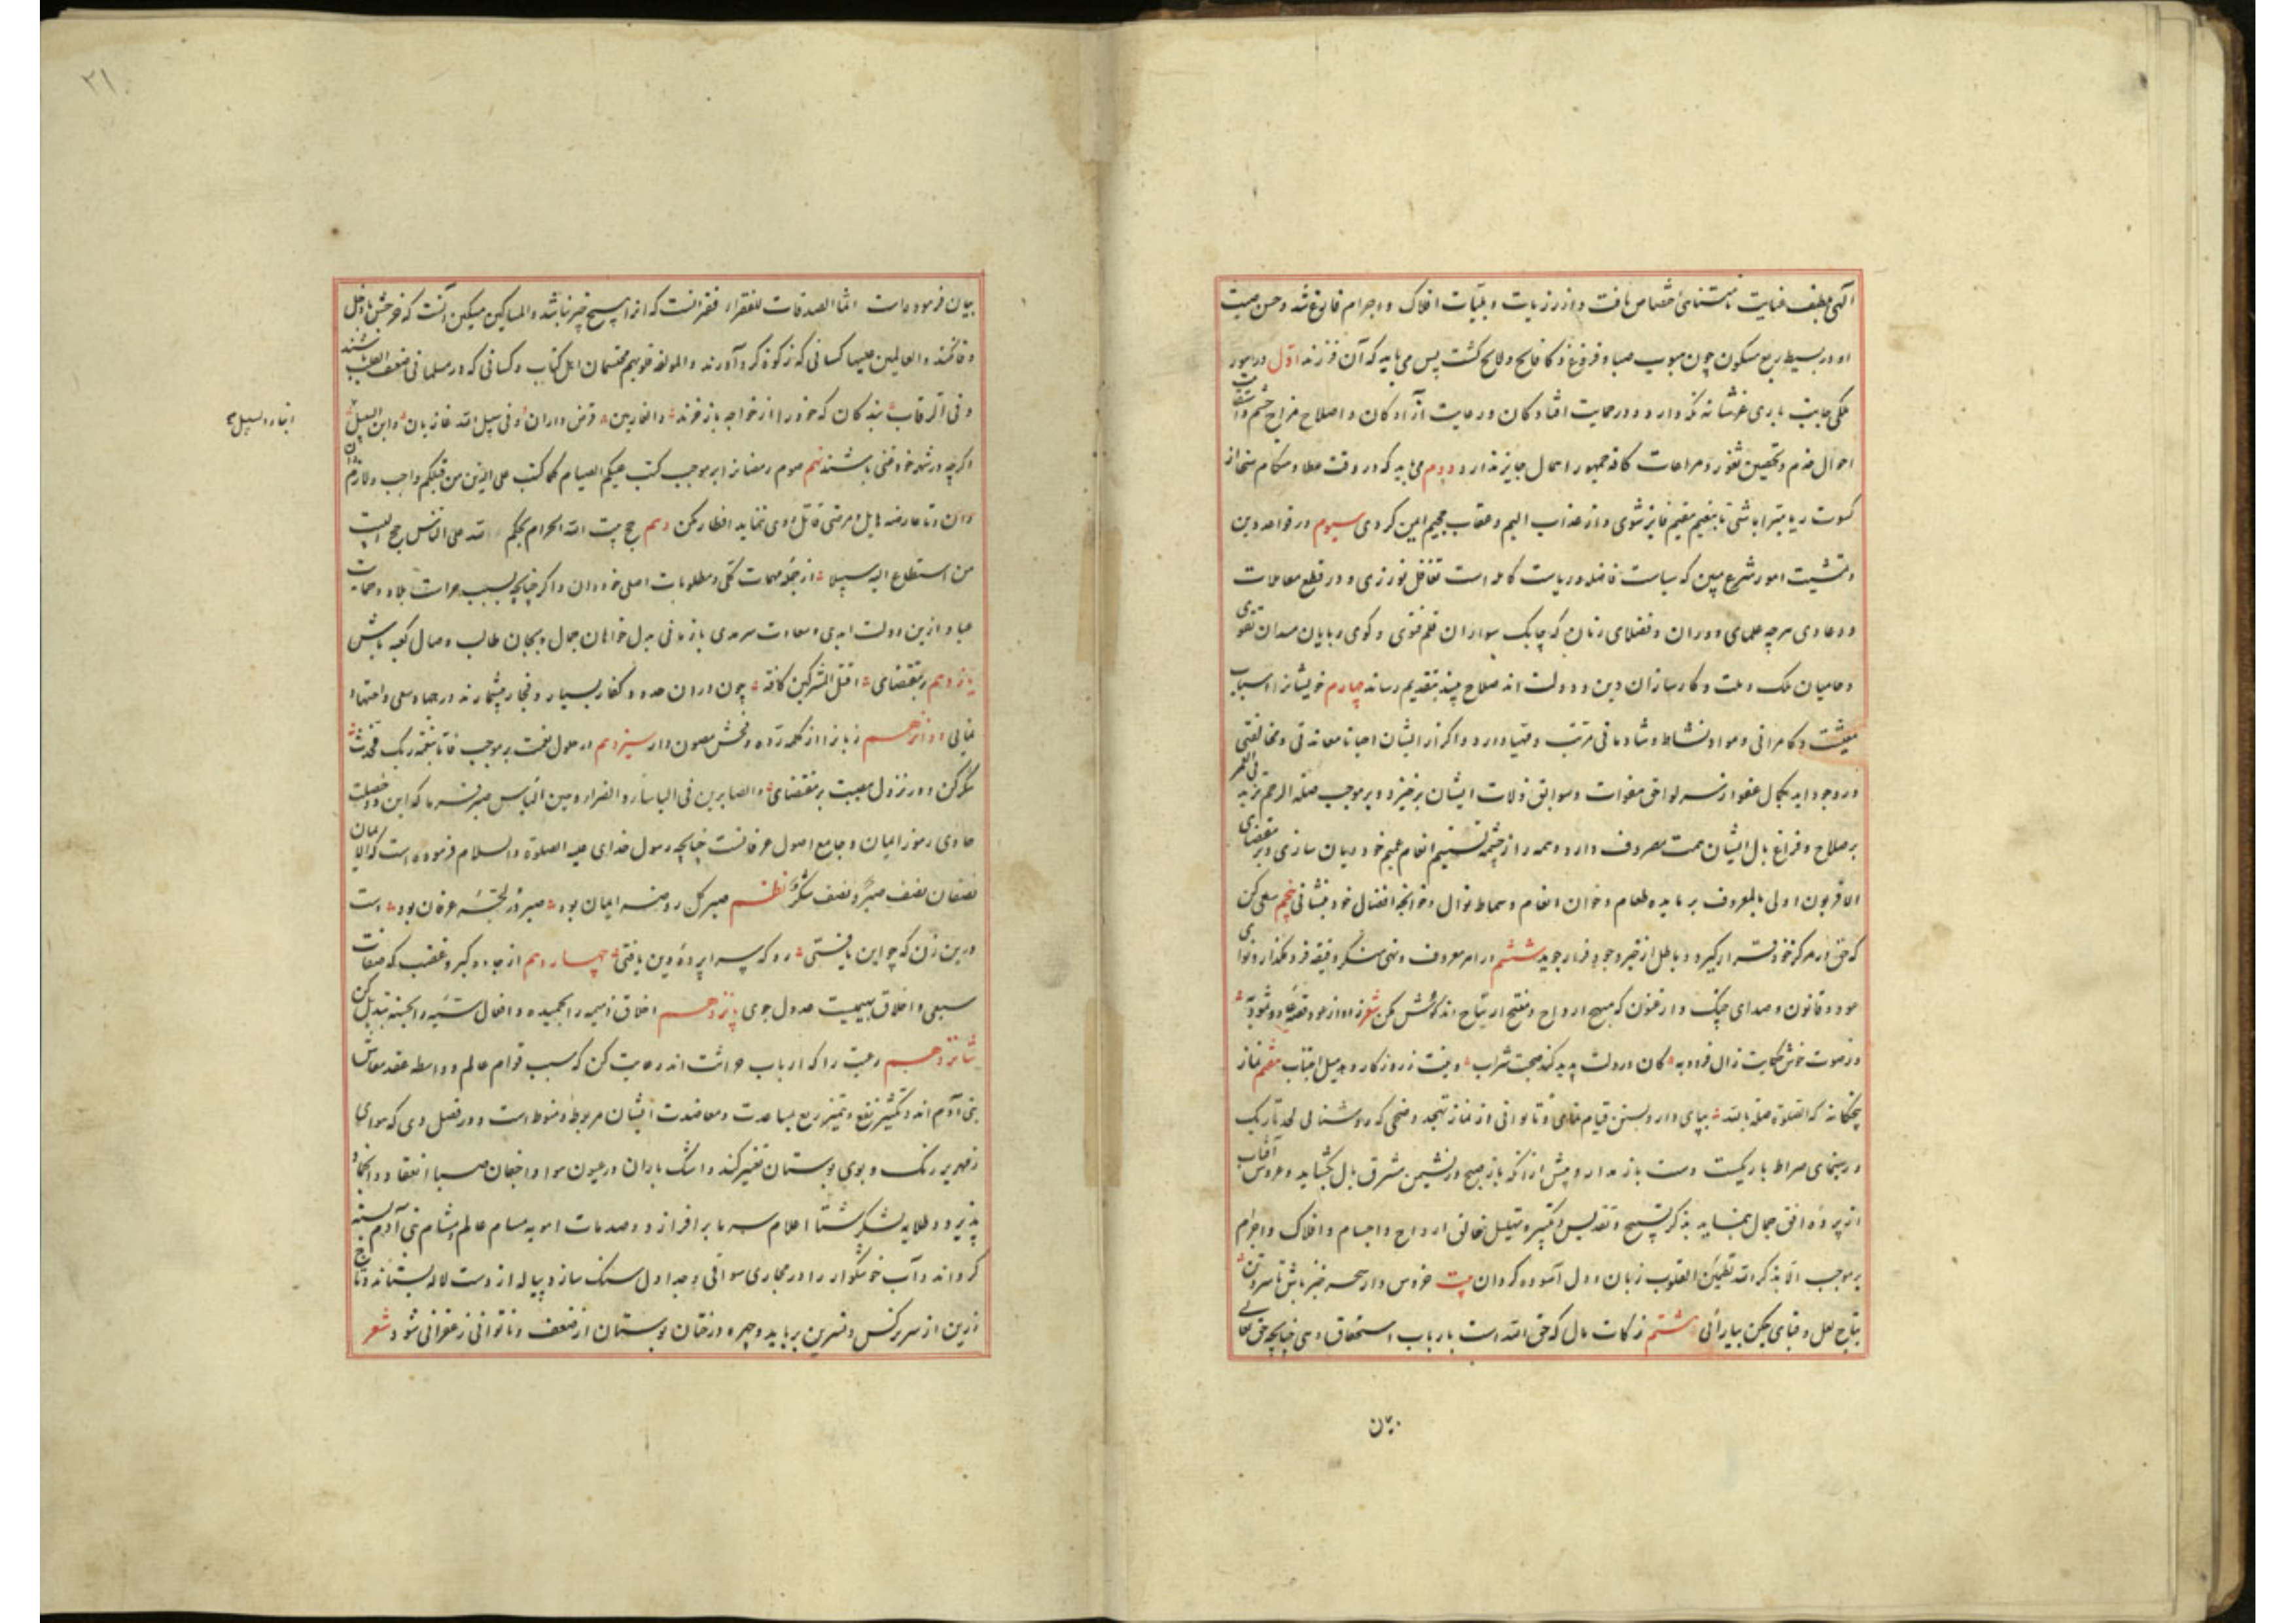 الهی بلطف عنایت نامتناهی اختصاص یافت و از رزیات و بلیّات افلاک و اجرام فارغ شد و حسن صیت
او در بسیط ربع مسکون چون هبوب صبا و فروغ ذکا فایح و لایح کشت پس می باید که آن فرزند اوّل در امور
ملکی جانب باری عزّ شانه نکه دارد و در حمایت افتادکان و رعایت آزادکان و اصلاح مزاج حشم و
احوال خدم و تحصین ثغور و مراعات کافه جمهور اهمال جایز ندارد دوم می باید که در وقت عطا و هنکام سخا از
کسوت ریا مبرا باشی تا بنعیم مقیم فایز شوی و از عذاب الیم و عقاب جحیم ایمن کردی سیوم در قواعد دین
و تمشیت امور شرع مبین که سیاست فاضله و ریاست کامله است تغافل نورزی و در قطع معاملات
و دعاوی هرچه علمای دوران و فضلای زمان که چابک سواران قلم فتوی و کوی ربایان میدان تقوی
و حامیان ملک و ملت و کارسازان دین و دولت اند صلاح بینند بتقدیم رساند چهارم خویشانرا اسباب
معیشت و کامرانی و مواد نشاط و شادمانی مرتب و مهیا دارد و اکر از ایشان احیانا معاندتی و مخالفتی
در وجود اید بکمال عفو از سر لواحق هفوات و سوابق زلات ایشان برخیزد و بر موجب صلة الرحم تزید فی العمر
بر صلاح و فراغ بال ایشان همت مصروف دارد و همه را از چشمه تسنیم انعام عمیم خود ریان سازی و بر مقتضای
الاقربون اولی بالمعروف بر مایده طعام و خوان انعام و سماط نوال و خوانچه افضال خود بنشانی پنجم سعی کن
که حق در مرکز خود قرار کیرد و باطل از خیر وجود فرار جوید ششم در امر معروف و نهی منکر دقیقه فرو مکذار و نوای
عود و قانون و صدای چنک و ارغنون که مهیج ارواح و مفتح ارتیاح اند کوش مکن شعر
در صوت خوش حکایت زال فرو وبه کان در دلت پدید کند صحبت شراب هفتم نماز
پنجکانه که الصلوة صلة بالله بپای دار و بسنن قیام نمای و تا توانی از نماز تهجد و ضحی که روشنایی لحد تاریک
و رهنمای صراط باریکست دست باز مدار و پیش از انکه باز صبح در نشیمن مشرق بال بکشاید و عروس آفتاب
از پرده افق جمال بنماید بذکر تسبیح و تقدیس و تکبیر و تهلیل خالق ارواح و اجسام و افلاک و اجرام
بر موجب الا بذکر الله تطمئن القلوب زبان و دل آسوده کردان بیت خروس وار سحر خیز باش تا سر و تن
بتاج لعل و قبای چکن بیارائی هشتم زکات مال که حق الله است بارباب استحقاق دهی چنانچه حق تعالی
بیان
۲۱
بیان فرموده است انما الصدقات للفقراء فقیر انست که او را هیچ چیز نباشد و المساکین مسکین آنست که خرجش با دخل
وفا نکند و العاملین علیها کسانی که زکوة کرد آورند و المولفه قلوبهم محتشمان اهل کتاب و کسانی که در مسلمانی ضعیف العقیده باشند
و فی الرقاب بندکان که خود را از خواجه باز خرند و الغارمین قرض داران و فی سبیل الله غازیان و ابن السبیل
اکرچه در شهر خود غنی باشند نهم صوم رمضانرا بر موجب کتب علیکم الصیام کما کتب علی الذین من قبلکم واجب و لازم
دان و تا عارضه هایل و مرضی قاتل روی ننماید افطار مکن دهم حج بیت الله الحرام بحکم لله علی الناس حج البیت
من استطاع الیه سبیلا از جمله مهمات کلی و مطلوبات اصلی خود دان و اکر چنانچه بسبب حراست بلاد و حمایت
عباد ازین دولت ابدی و سعادت سرمدی باز مانی بدل خواهان جمال و بجان طالب وصال کعبه باش
یازدهم بر مقتضای اقتلوا المشرکین کافه چون دران حدود کفار بسیار و فجار بیشمارند در جهاد سعی و اجتهاد
نمایی دوازدهم زبانرا از کلمه رده و فحش مصون دار سیزدهم در حلول نعمت بر موجب فاما بنعمة ربک فحدث
شکر کن و در نزول مصیبت بر مقتضای و الصابرین فی الباساء و الضراء و حین الباس صبر فرما که این دو خصلت
حاوی رموز ایمان و جامع اصول عرفانست چنانچه رسول خدای علیه الصلوة و السلام فرموده است که الایمان
نصفان نصف صبر و نصف شکر نظم صبر کل روضه ایمان بود صبر در لجه عرفان بود دست
درین زن که چو این یافتی رو که سراپرده دین یافتی چهاردهم از جاده کبر و غضب که صفات
سبعی و اخلاق بهیمیست عدول جوی پانزدهم اخلاق ذمیمه را بحمیده و افعال سیئه را بحسنه تبدیل کن
شانزدهم رعیت را که ارباب حراثت اند رعایت کن که سبب قوام عالم و واسطه عقد معاش
بنی آدم اند و تکثیر نفع و تثمیر ریع بمساعدت و معاضدت ایشان مربوط و منوط است و در فصل دی که هوای
زمهریر رنک و بوی بوستان تغییر کند و اشک باران در عیون هوا و اجفان صبا انعقاد و انجماد
پذیرد و طلایه لشکر شتا اعلام سرما برافرازد و صدمات اهویه مسام عالم و مشام بنی آدم بسته
کرداند و آب خوشکوار را در مجاری سواقی و جداول سنک سازد و پیاله از دست لاله بستاند و تاج
زرین از سر نرکس و نسرین برباید و چهره درختان بوستان از ضعف و ناتوانی زعفرانی شود شعر